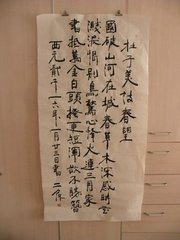 杜子美詩春望
國破山河在城春草木深感時花
濺淚恨別鳥驚心烽火連三月家
書抵萬金白頭搔更短渾欲不勝簪
西元貳千一六年一月廿三日書